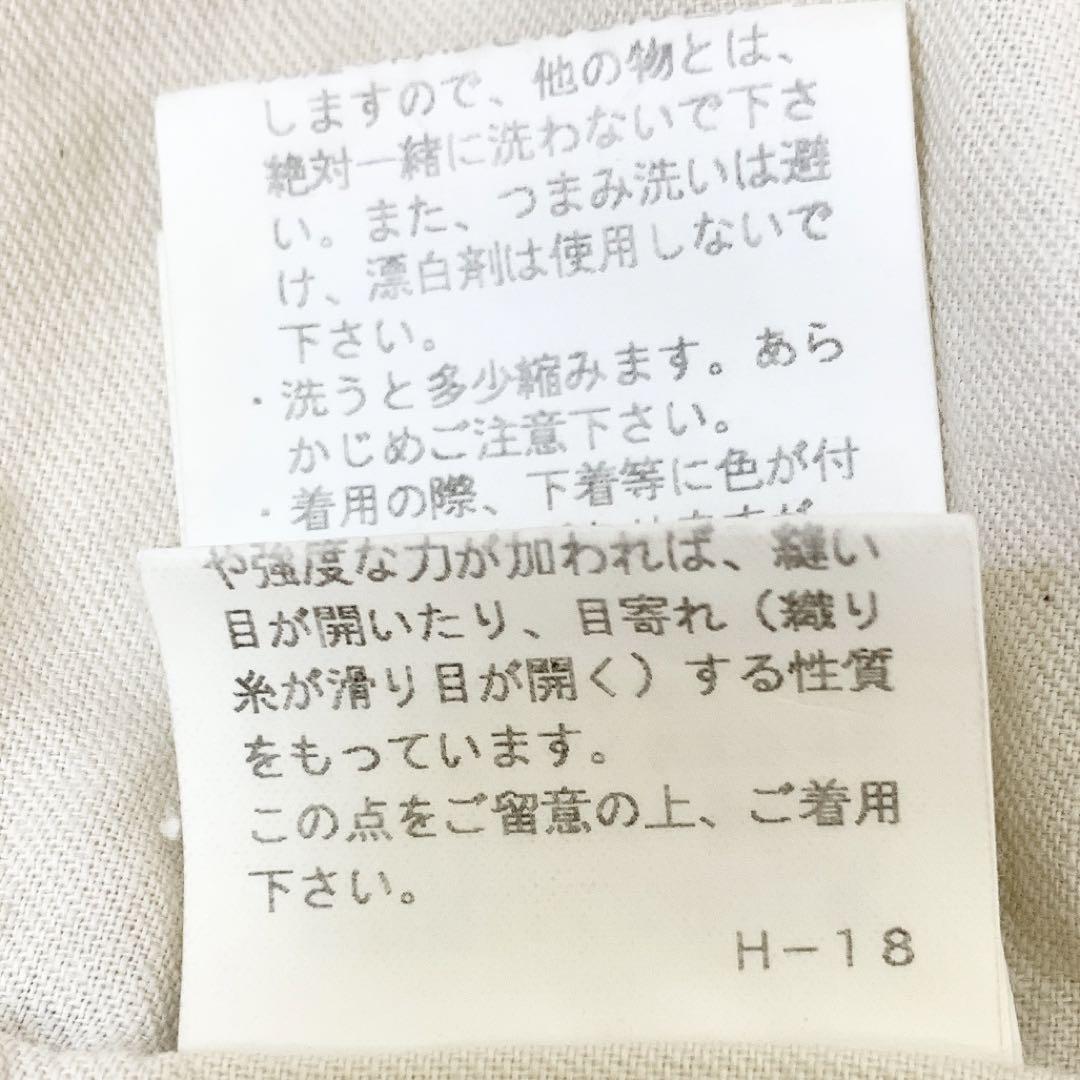 しますので、他の物とは、
絶対一緒に洗わないで下さ
い。また、つまみ洗いは避
け、漂白剤は使用しないで
下さい。
・洗うと多少縮みます。あら
かじめご注意下さい。
・着用の際、下着等に色が付
や強度な力が加われば、縫い
目が開いたり、目寄れ（織り
糸が滑り目が開く）する性質
をもっています。
この点をご留意の上、ご着用
下さい。
H－18